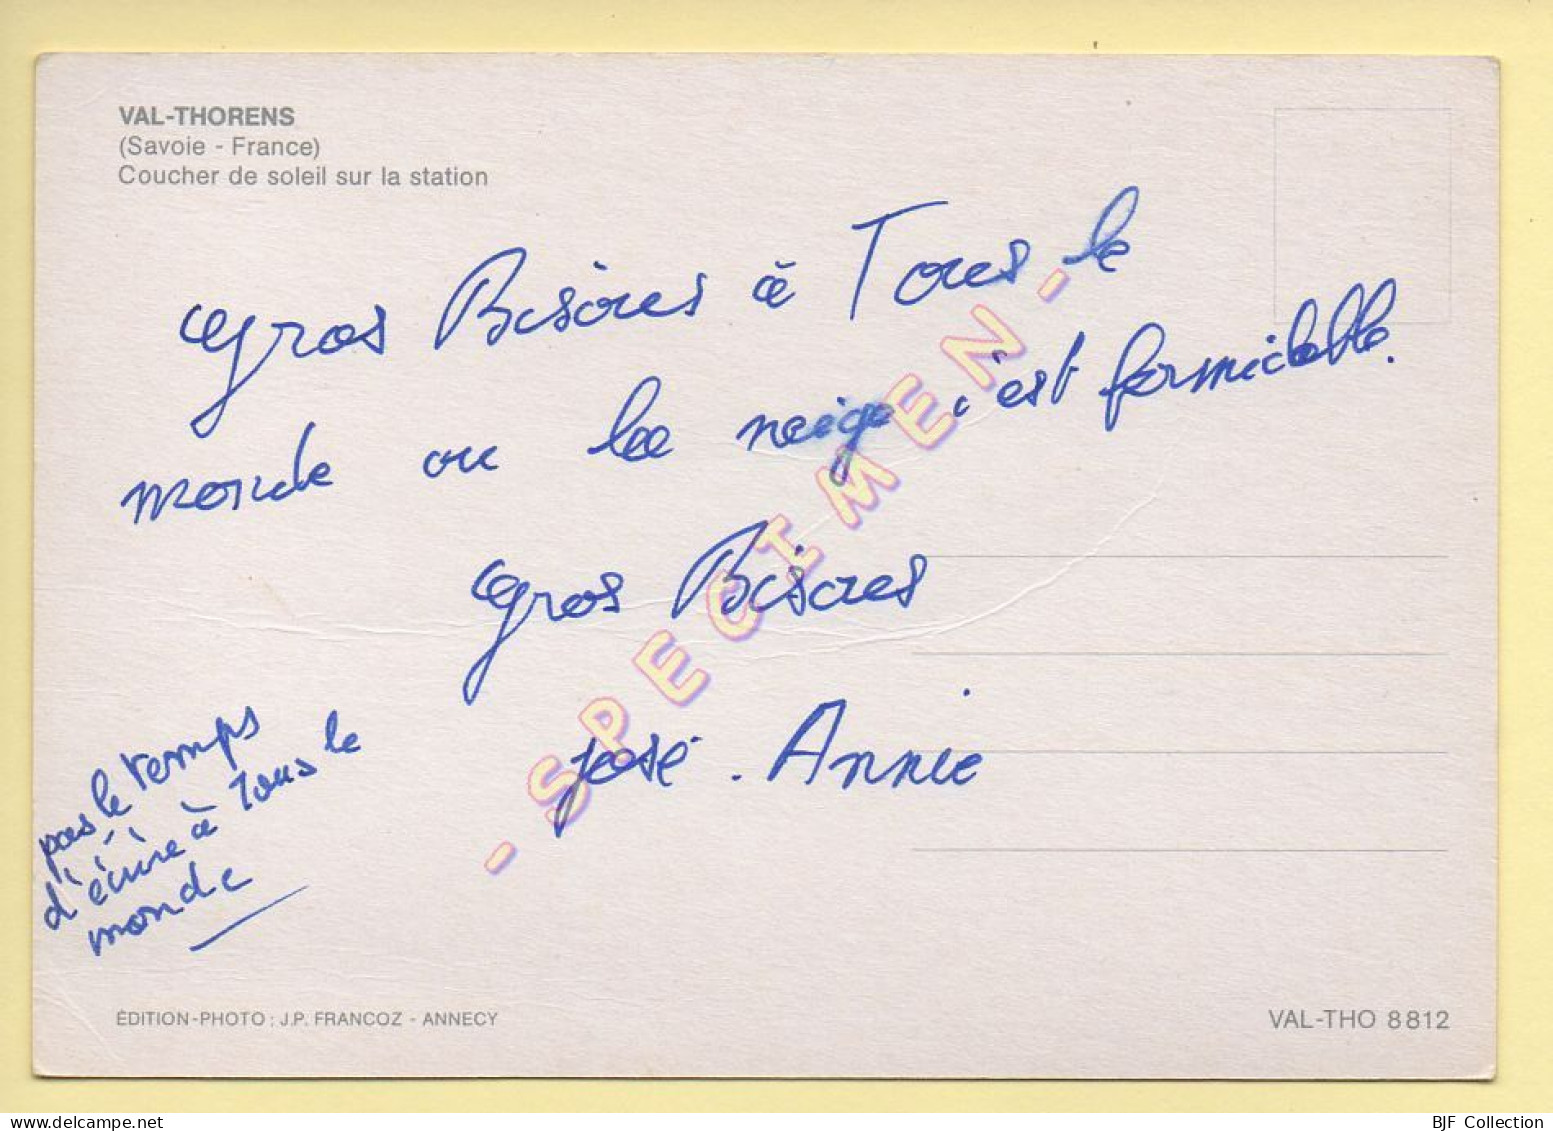 VAL-THORENS
(Savoie - France)
Coucher de soleil sur la station
Gros Bisous à Tous le
monde ou la neige c'est formidable.
Gros Bisous
José. Annie
pas le temps
d'écrire à tous le
monde
- SPECIMEN -
ÉDITION-PHOTO : J.P. FRANCOZ - ANNECY
VAL-THO 8812
BJF Collection